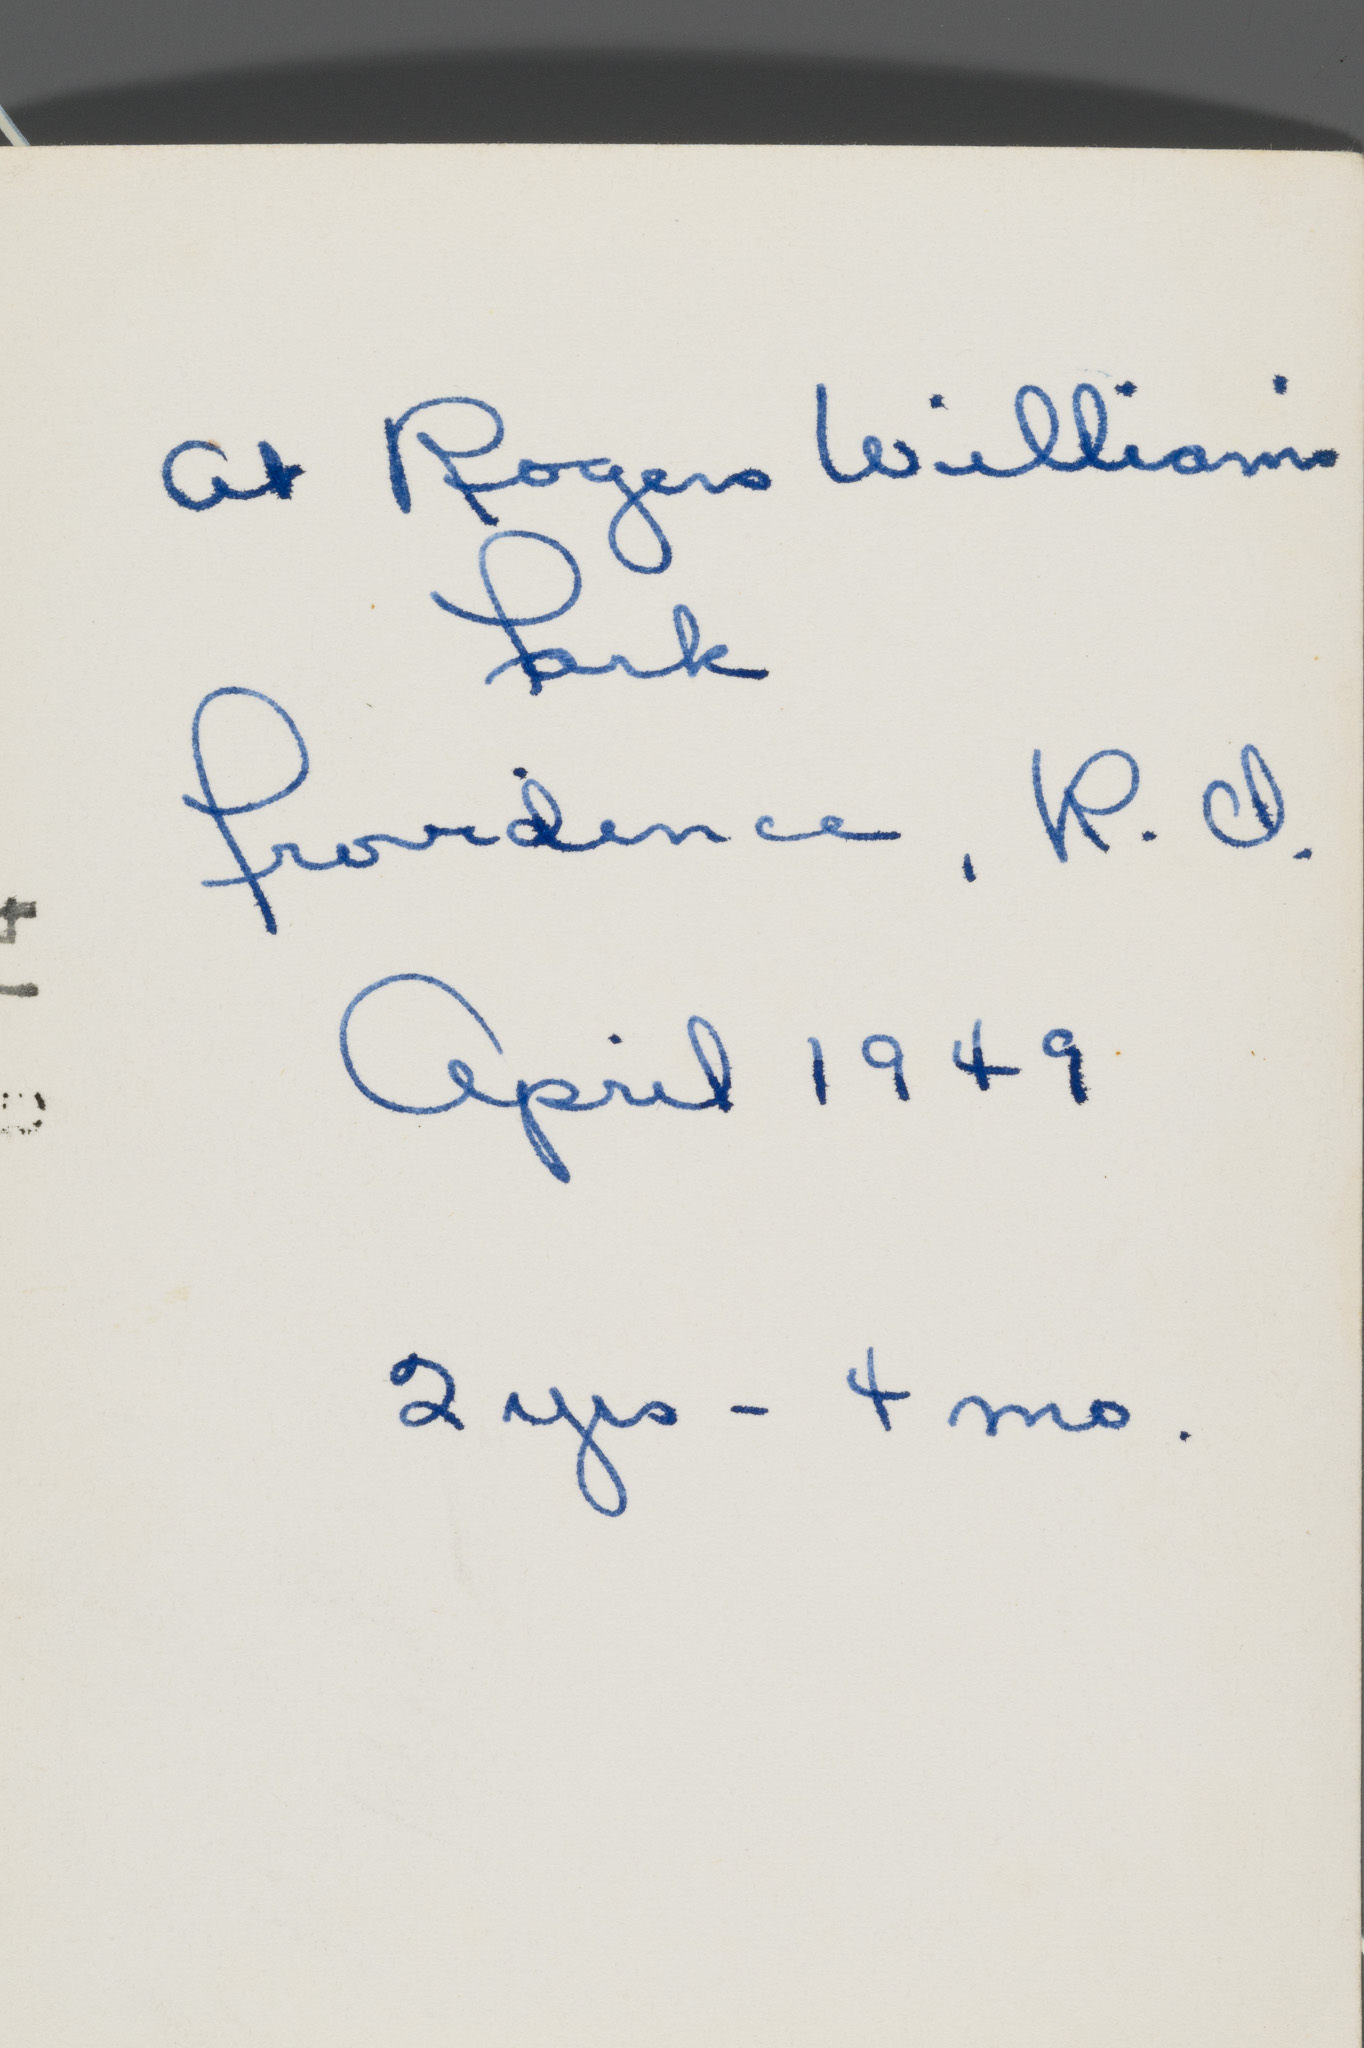 at Rogers Williams
Park
Providence, R. I.
April 1949
2 yrs - 4 mo.